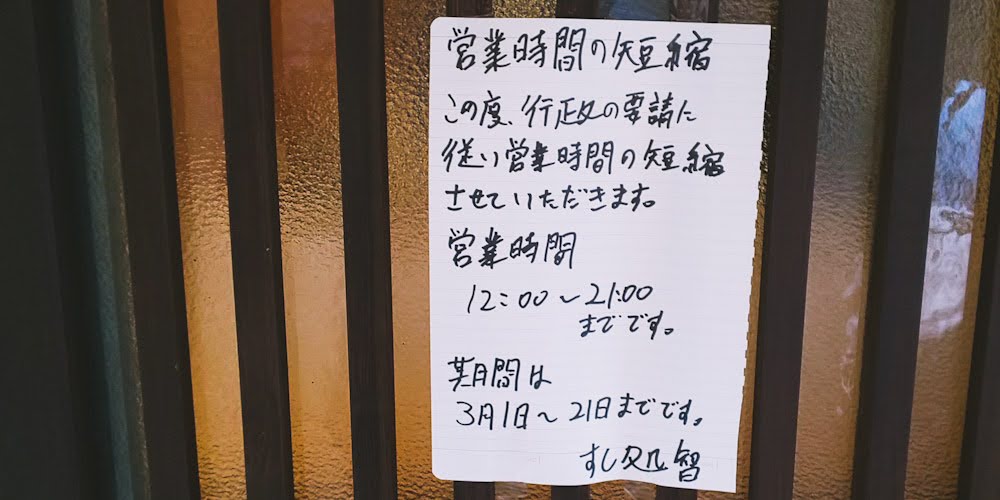 営業時間の短縮
この度、行政の要請に
従い営業時間の短縮
させていただきます。
営業時間
12:00〜21:00
までです。
期間は
3月1日〜21日までです。
すし処智